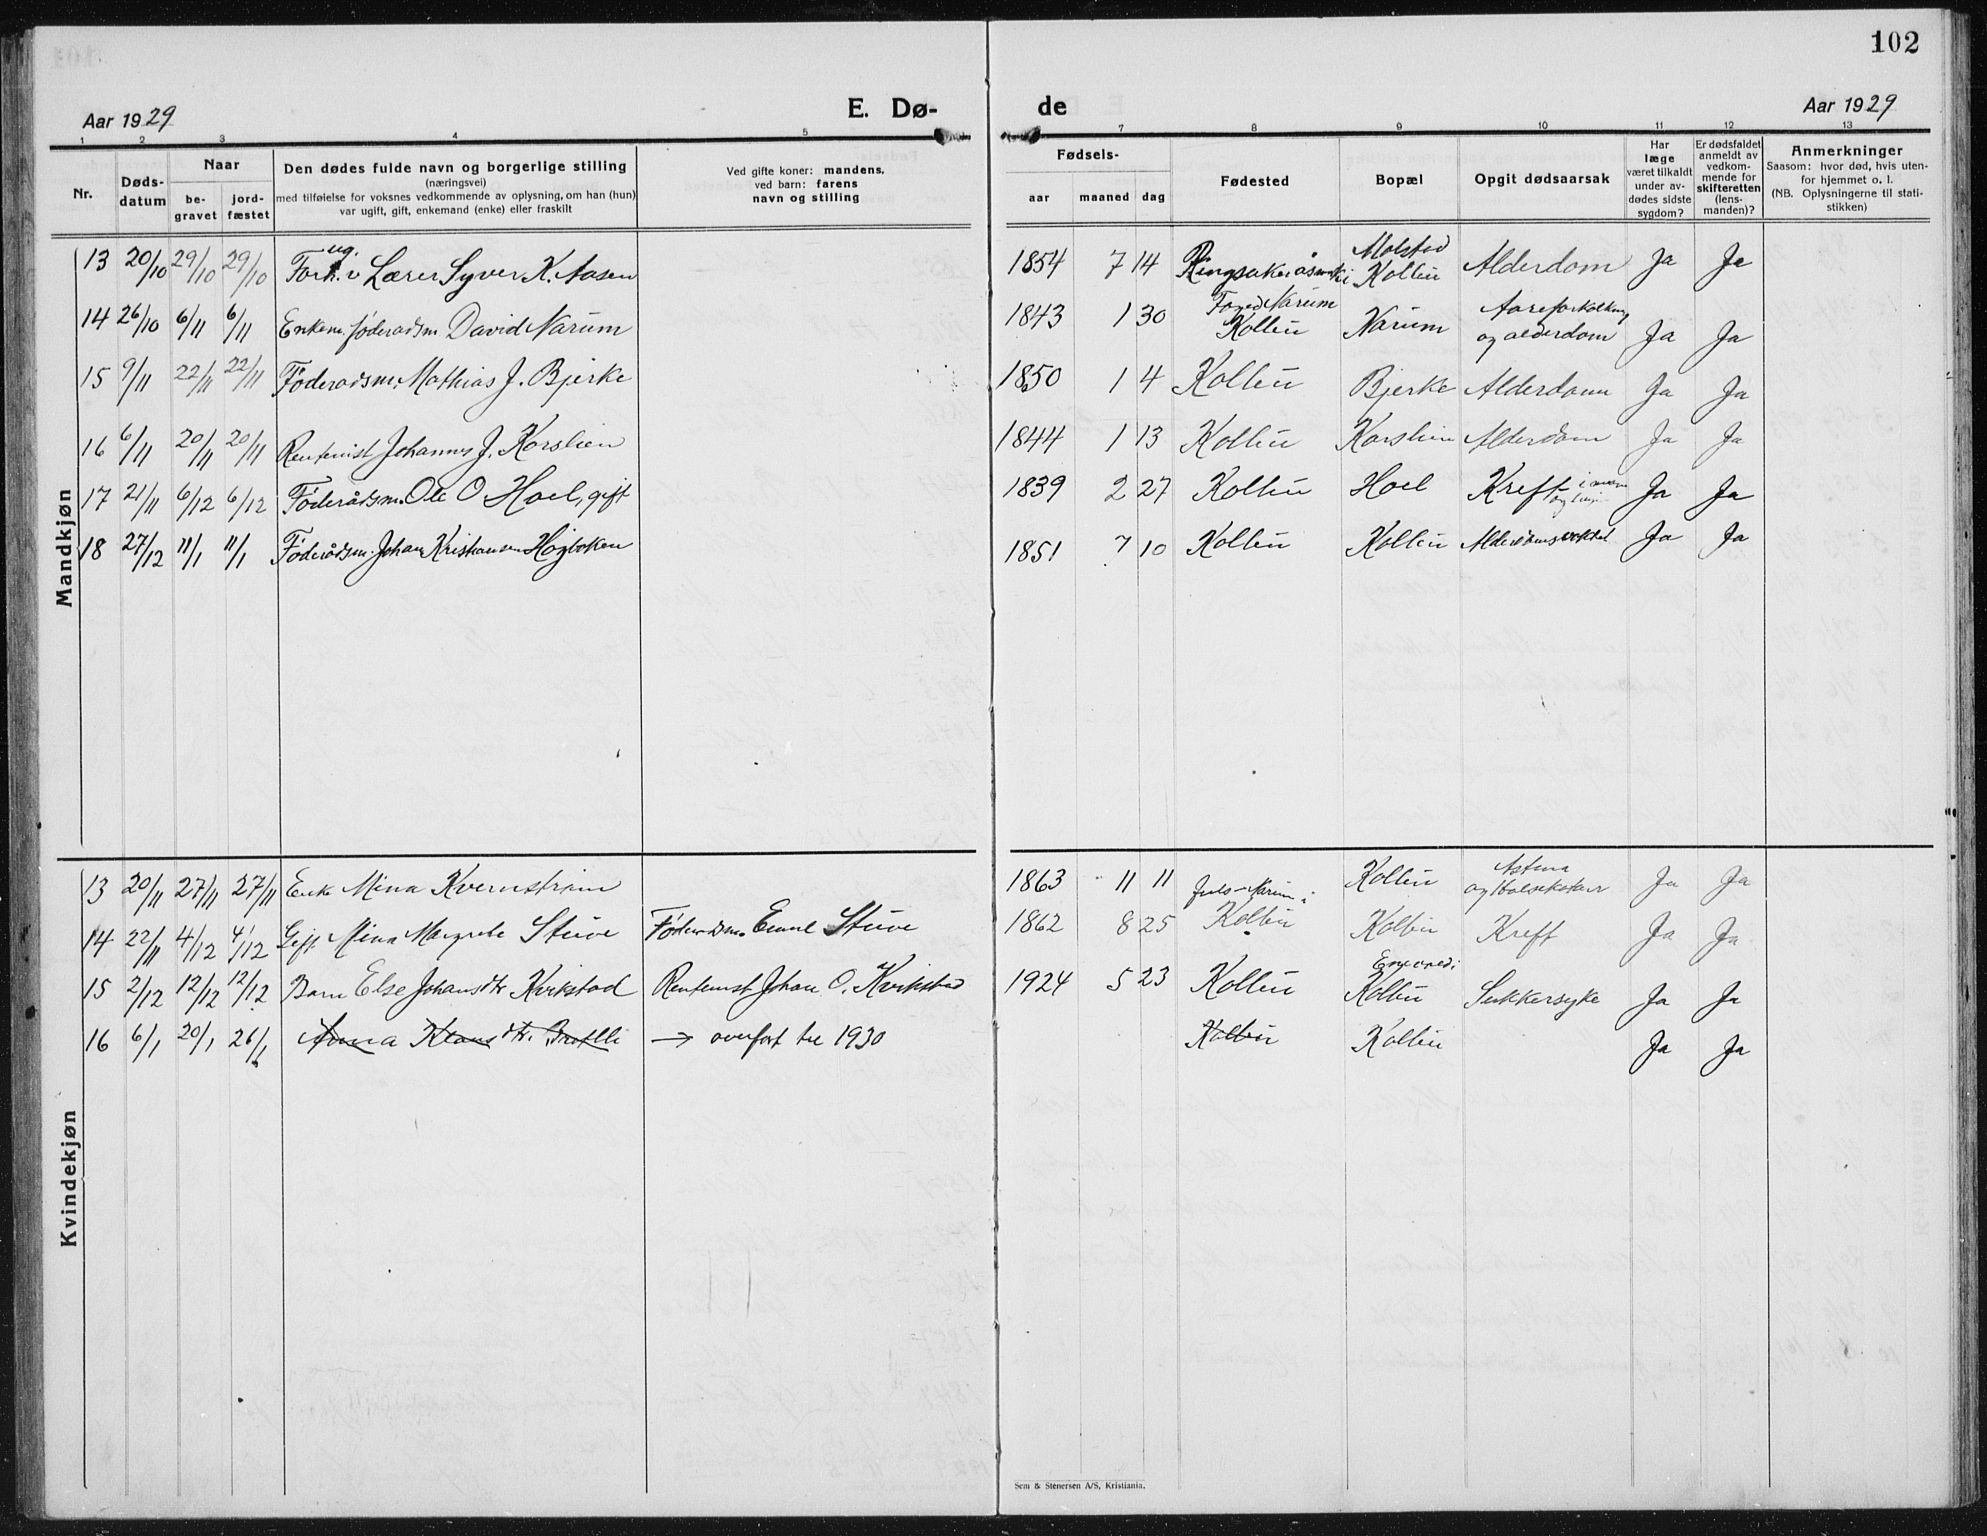 102
Aar 1929 E. Dø- de Aar 1929
1 2 3 4 5 7 8 9 10 11 12 13
Nr.
Døds-
datum
Naar
be-
gravet
jord-
fæstet
Den dødes fulde navn og borgerlige stilling
(næringsvei)
med tilføielse for voksnes vedkommende av oplysning, om han (hun)
var ugift, gift, enkemand (enke) eller fraskilt
Ved gifte koner: mandens,
ved barn: farens
navn og stilling
Fødsels-
aar maaned dag
Fødested
Bopæl
Opgit dødsaarsak
Har
læge
været tilkaldt
under av-
dødes sidste
sygdom?
Er dødsfaldet
anmeldt av
vedkom-
mende for
skifteretten
(lens-
manden)?
Anmerkninger
Saasom: hvor død, hvis uten-
for hjemmet o. l.
(NB. Oplysningerne til stati-
stikken)
Mandkjøn
ug. Molstad
13 20/10 29/10 29/10 Forh. v Lærer Syver K. Aasen 1854 7 14 Ringsaker Kolbu Alderdom Ja Ja
Narum Aareforkalkning
14 26/10 6/11 6/11 Enkem. føderadsm. David Narum 1843 1 30 Kolbu Narum og alderdom Ja Ja
15 9/11 22/11 22/11 Føderadsm. Mathias J. Bjerke 1850 1 4 Kolbu Bjerke Alderdom Ja Ja
16 6/11 20/11 20/11 Rentenist Johannes J. Korslien 1844 1 13 Kolbu Korslien Alderdom Ja Ja
17 21/11 6/12 6/12 Føderådsm. Ole O Hoel, gift 1839 2 27 Kolbu Hoel Kreft i Ja Ja
18 27/12 11/1 11/1 Føderådsm. Johan Kristiansen Høgbakken 1851 7 10 Kolbu Kolbu Ja Ja
Kvindekjøn
Astma
13 20/11 27/11 27/11 Enke Mina Kvernstrøm 1863 11 11 Narum i Kolbu og Ja Ja
14 22/11 4/12 4/12 Gift Mina Margrete Stuve Føderadsm. Emil Stuve 1862 8 25 Kolbu Kolbu Kreft Ja Ja
15 2/12 12/12 12/12 Barn Else Johansdtr Kvikstad Rentenist Johan O. Kvikstad 1924 5 23 Kolbu Kolbu Sukkersyke Ja Ja
16 6/1 20/1 26/1 Anna Klausdtr. → overført til 1930 Kolbu Kolbu Ja Ja
Sem & Stenersen A/S, Kristiania.